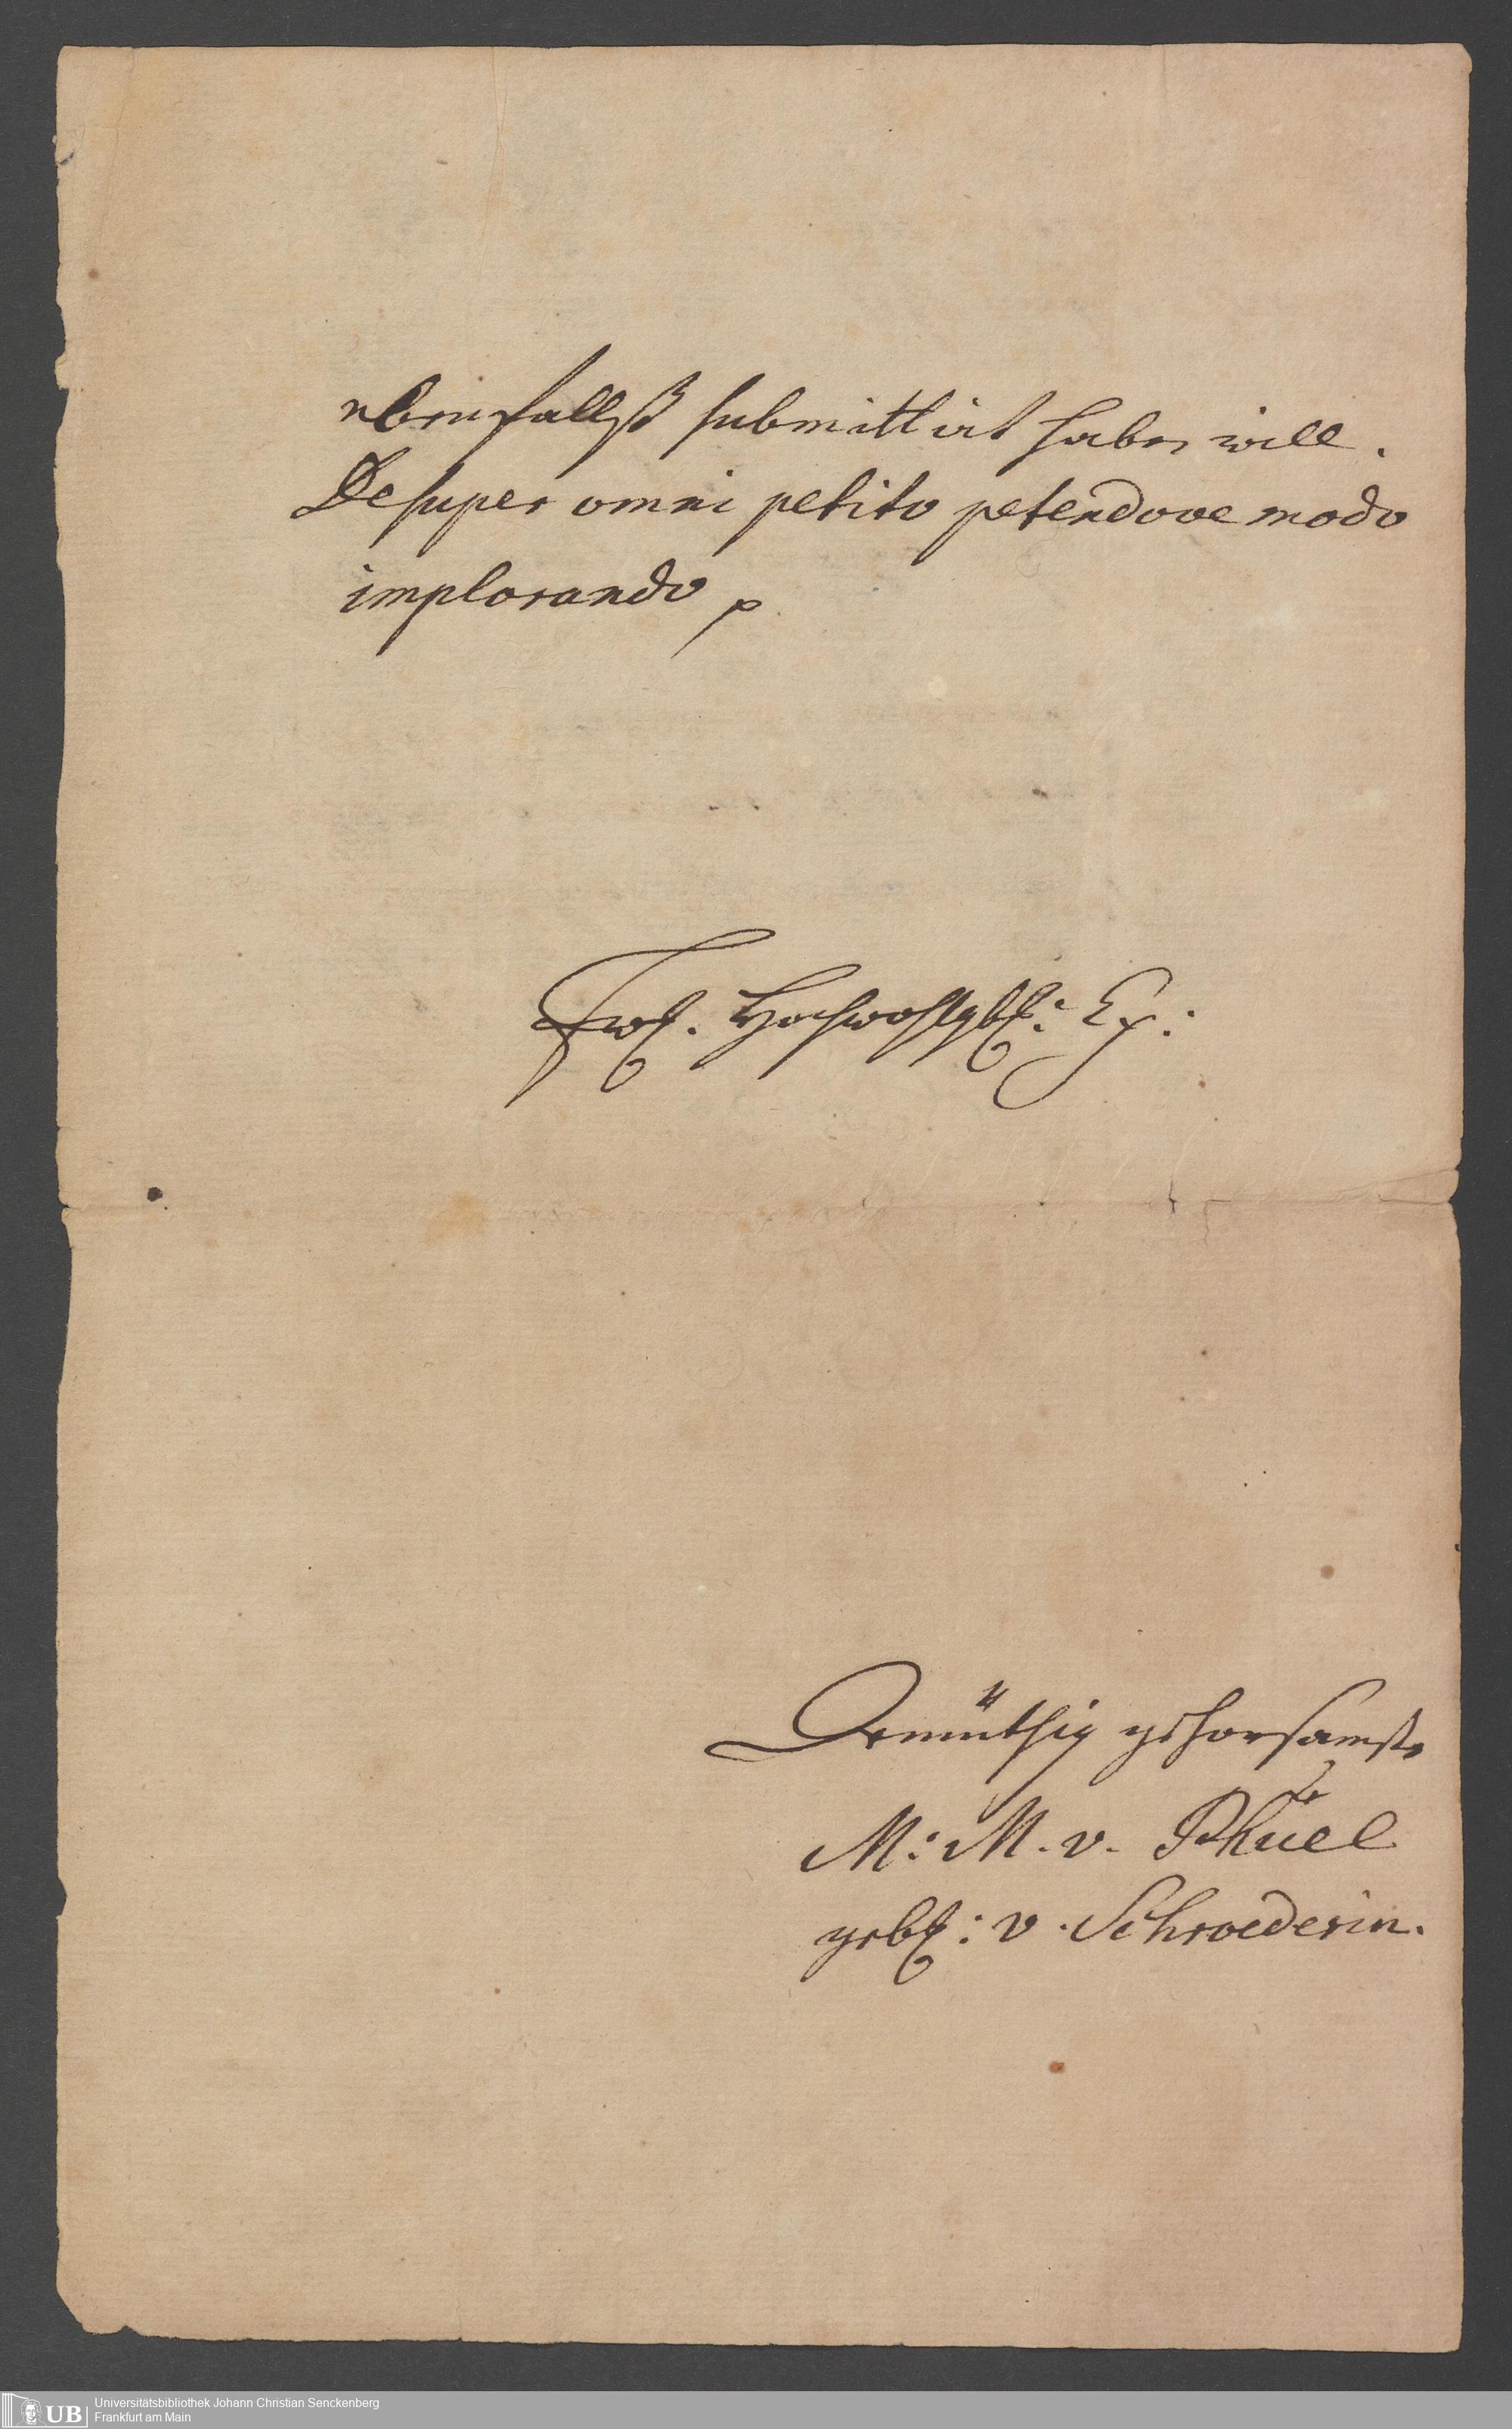 ebenfallß submittirt haben will.
Desuper omni petito petendove modo
implorando p
Ew. Hochwohlgeb: Ex:
Demüthig gehorsamste
M: M. v. Phuel
geb: v. Schroederin.
UB Universitätsbibliothek Johann Christian Senckenberg
Frankfurt am Main